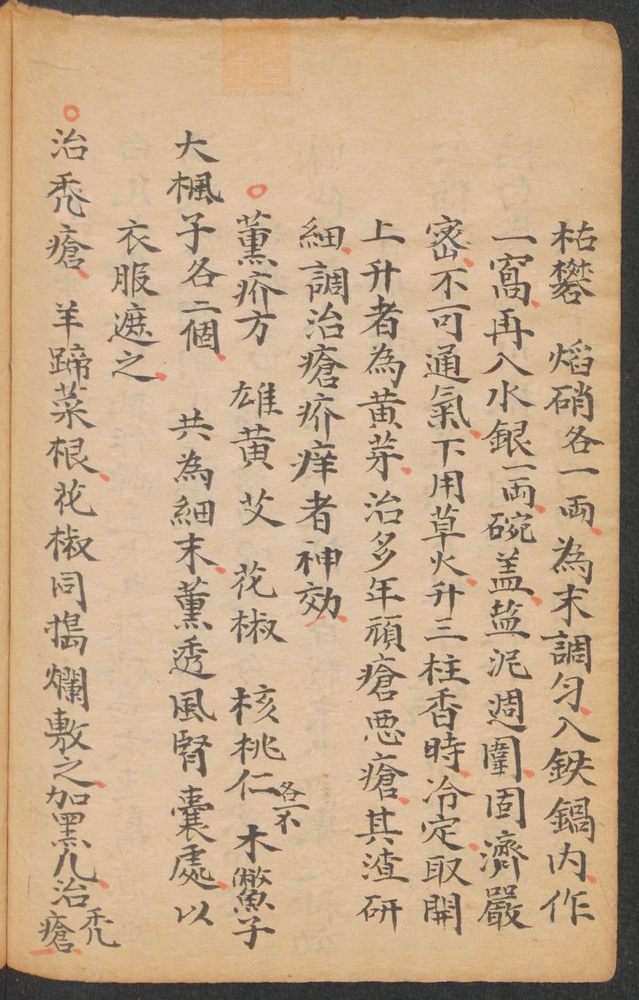 枯礬　熖硝各一兩為末調匀入鉄鍋内作
一窩再入水銀一兩碗盖盐泥週圍固濟嚴
密不可通氣下用草火升三柱香時冷定取開
上升者為黄芽治多年頑瘡悪瘡其渣研
細調治瘡疥痒者神効
薰疥方　雄黄　艾　花椒　核桃仁各一不　木鱉子
大楓子各二個　共為細末薰透風腎囊處以
衣服遮之
治禿瘡　羊蹄菜根花椒同搗爛敷之加黑凡治禿瘡